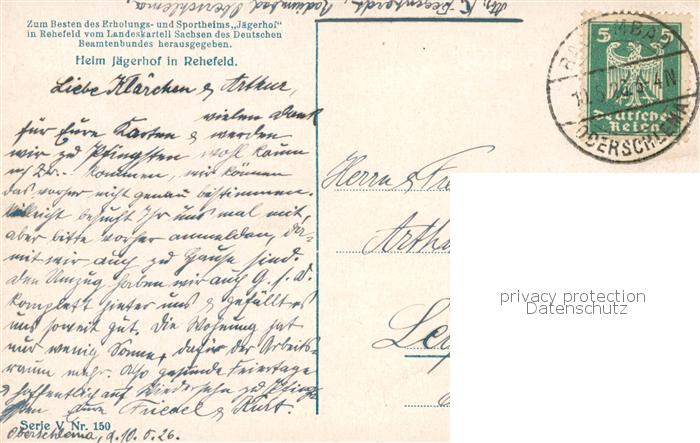 Zum Besten des Erholungs- und Sportheims „Jägerhof"
in Rehefeld vom Landeskartell Sachsen des Deutschen
Beamtenbundes herausgegeben.
Heim Jägerhof in Rehefeld.
Liebe Klärchen & Arthur,
vielen Dank
für Eure Karten & werden
wir zu Pfingsten wohl kaum
nach kommen, wir können
das vorher nicht genau bestimmen.
Vielleicht besucht Ihr uns mal mit,
aber bitte vorher anmelden, da-
mit wir auch zu Hause sind.
Den Umzug haben wir auch G. s. D.
komplett hinter uns & gefällt es
uns soweit gut. Die Wohnung hat
nur wenig Sonne, dafür der Arbeits-
raum mehr. Also gesunde Feiertage
& hoffentlich auf Wiedersehn zu Pfing-
sten Eure Friedel & Kurt.
Serie V Nr. 150
Oberschlema, d. 10.5.26.
Radiumbad Oberschlema
5 5
Deutsches
Reich
OBERSCHLEMA
Herrn & Fr
Arth
Le
privacy protection
Datenschutz